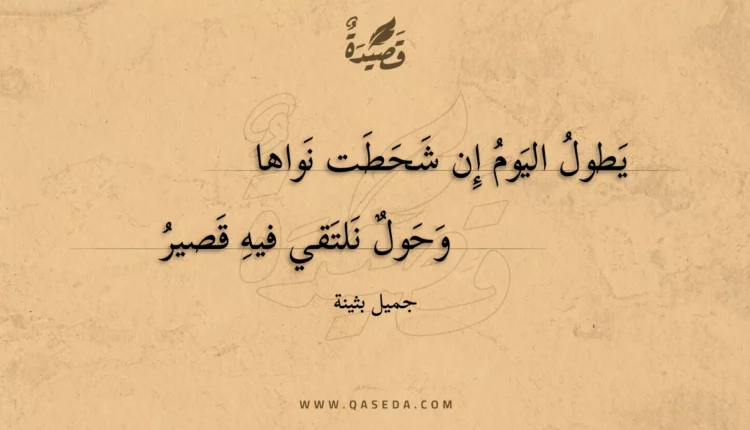 قَصِيدَةٌ
يَطولُ اليَومُ إِن شَحَطَت نَواها
وَحَولٌ نَلتَقي فيهِ قَصيرُ
جميل بثينة
WWW.QASEDA.COM